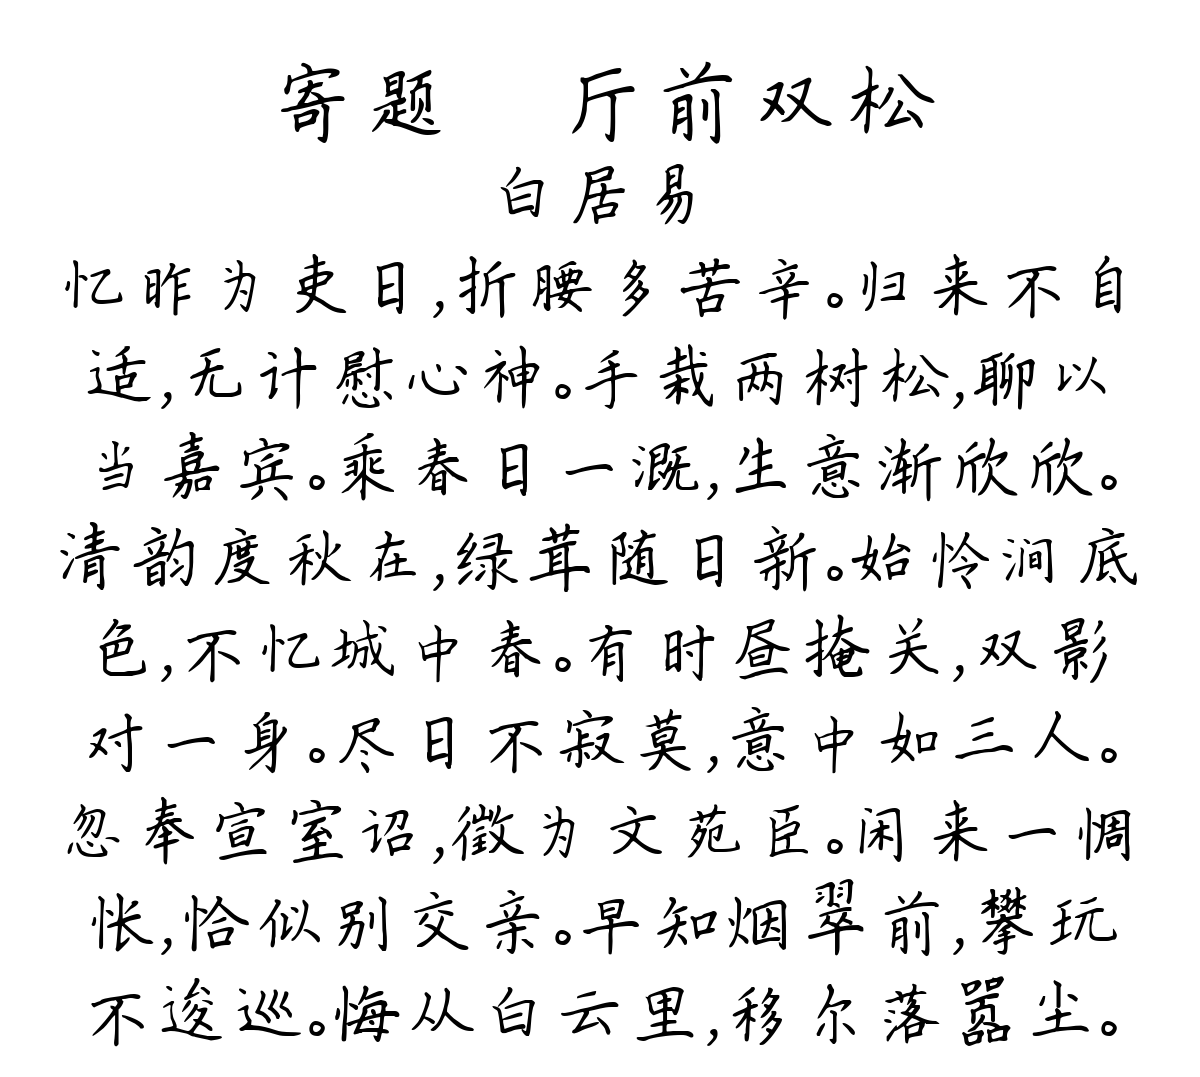 寄题 厅前双松
白居易
忆昨为吏日,折腰多苦辛。归来不自
适,无计慰心神。手栽两树松,聊以
当嘉宾。乘春日一溉,生意渐欣欣。
清韵度秋在,绿茸随日新。始怜涧底
色,不忆城中春。有时昼掩关,双影
对一身。尽日不寂莫,意中如三人。
忽奉宣室诏,徵为文苑臣。闲来一惆
怅,恰似别交亲。早知烟翠前,攀玩
不逡巡。悔从白云里,移尔落嚣尘。